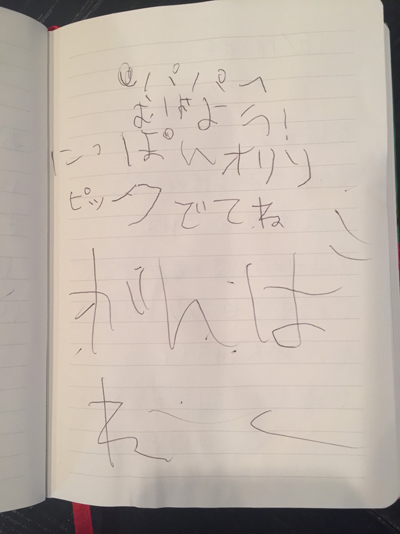 パパへ
おはよう!
にっぽんオリン
ピックでてね
がんば
れーく